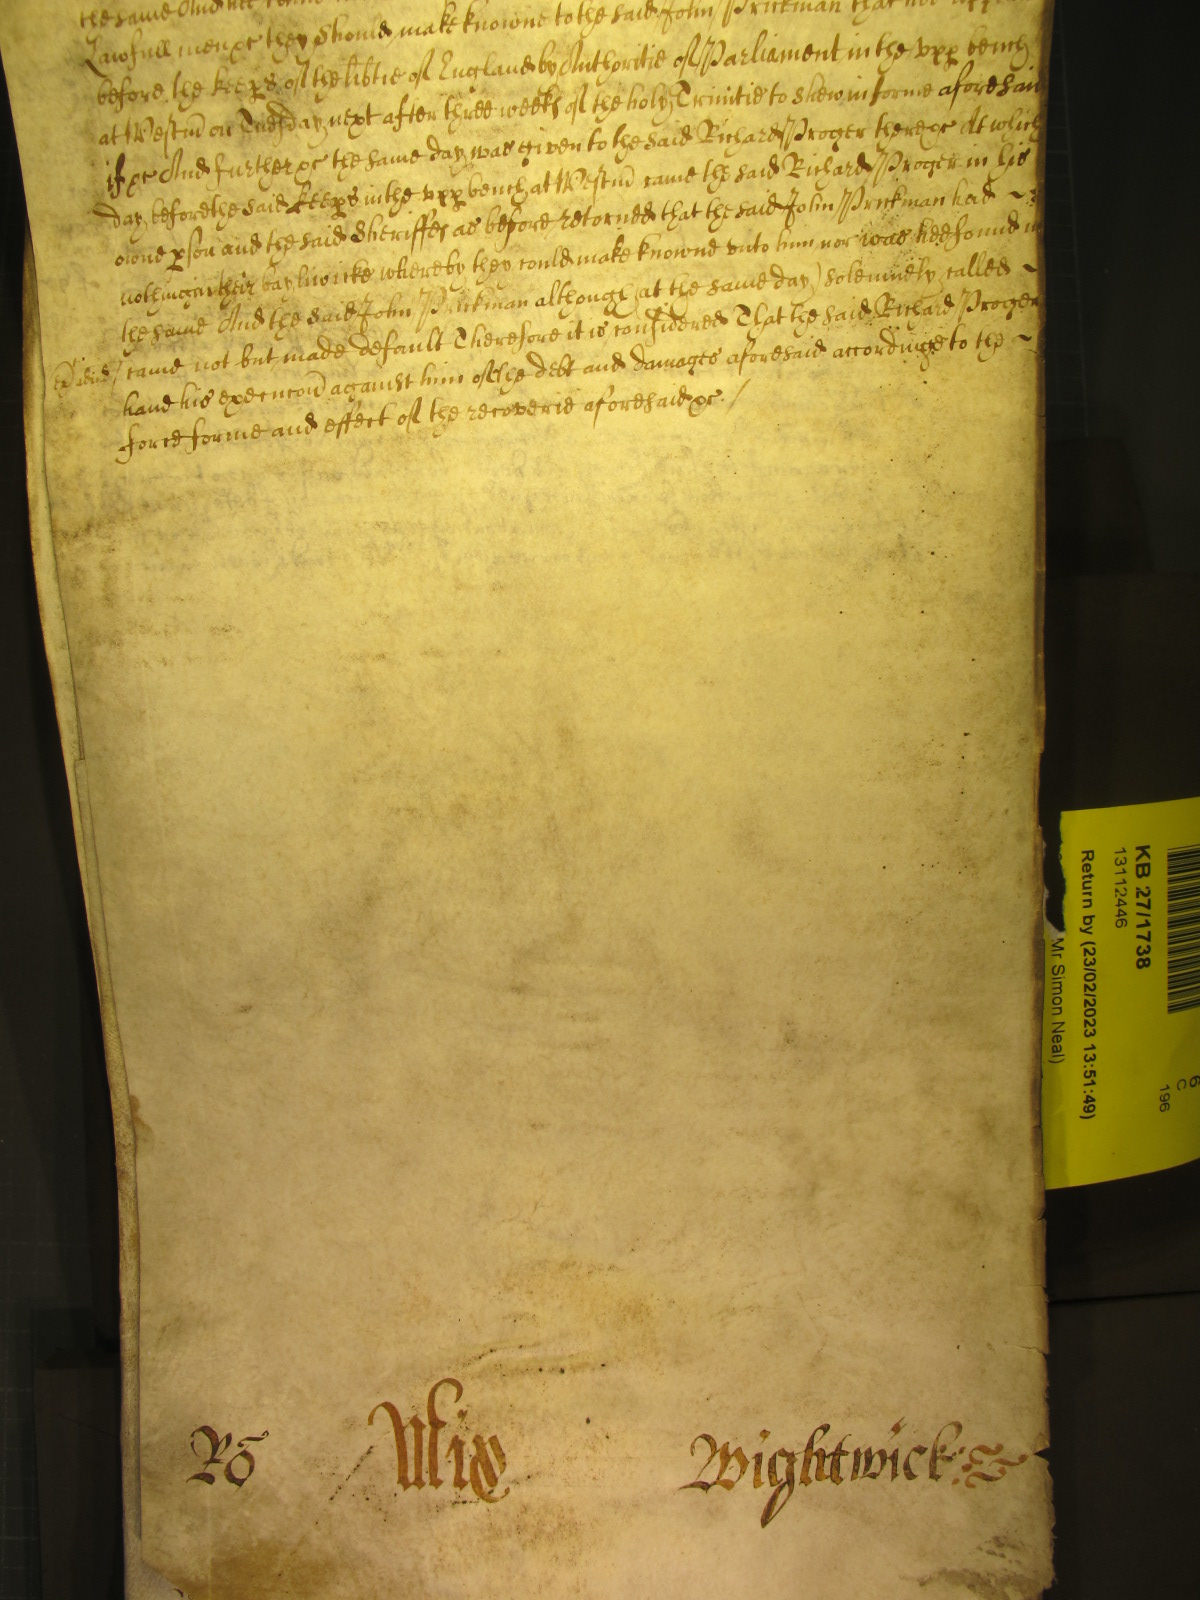 the same And
Lawfull men &c they should make knowne to the said John Prickman that
before the keeps of the libtie of England by Authoritie of Parliament in the vpp bench
at Westm on Tuesday next after three weeks of the holy Trinitie to shew in forme aforesaid
if &c And further &c the same day was given to the said Richard Proger there &c At which
day before the said keeps in the vpp bench at Westm came the said Richard Proger in his
owne pson and the said Sheriffes as before retorned that the said John Prickman had ~
nothing in their bayliwicke whereby they could make knowne vnto him nor was hee found in
the same And the said John Prickman although (at the same day) solemnely called ~
came not but made default Therefore it is considered That the said Richard Proger
haue his execucon against him of the debt and damages aforesaid according to the ~
force forme and effect of the recouerie aforesaid &c. /
Ro
Wightwick
KB 27/1738
13112446
Return by (23/02/2023 13:51:49)
Mr Simon Neal)
6
C
196